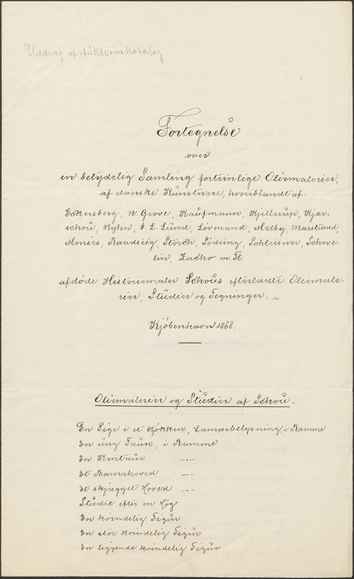 Uddrag af Auktionskatalog
Fortegnelse
over
en betydelig Samling fortrinlige Oliemalerier,
af danske Kunstnere, hvoriblandt af
Eckersberg, N. Grove, Kaufmann, Kjeldrup, Kjær-
schou, Kyhn, F. C. Lund, Løvmand, Melby,
Storch, Sødring, Schleisner, Schove-
lin, Zartho m. Fl
afdøde Historiemaler Schous efterladte Oliemale-
rier, Studier og Tegninger.
Kjøbenhavn 1868.
Oliemalerier og Studier af Schou.
En Pige i et Kjøkken, Lampebelysning i Ramme
En ung Faun, i Ramme
En
Et Barnehoved
Et skjægget Hoved
Studie efter en
En kvindelig Figur
En stor kvindelig Figur
En liggende kvindelig Figur